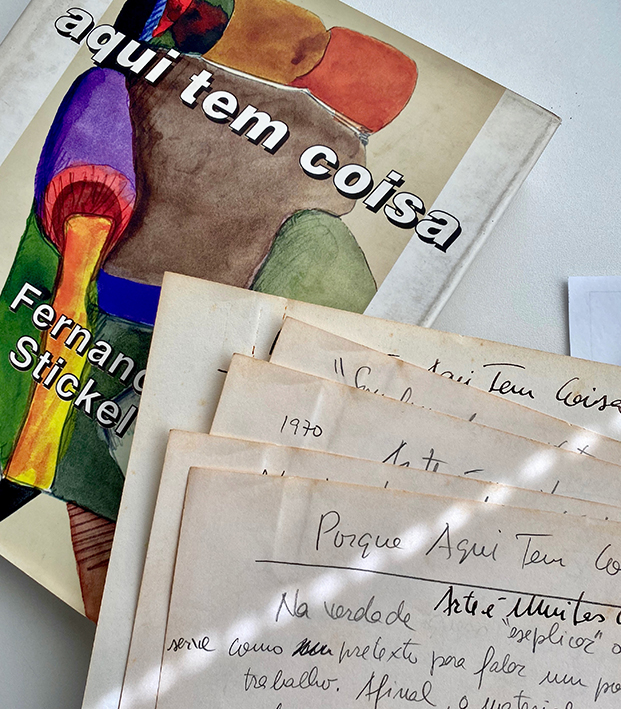 aqui tem coisa
Fernand
Stickel
Aqui Tem Coisa
1970
Arte é
Porque Aqui Tem Co
Na verdade Arte é Muitas
"esplicar"
serve como um pretexto para falar um po
trabalho. Afinal, o material